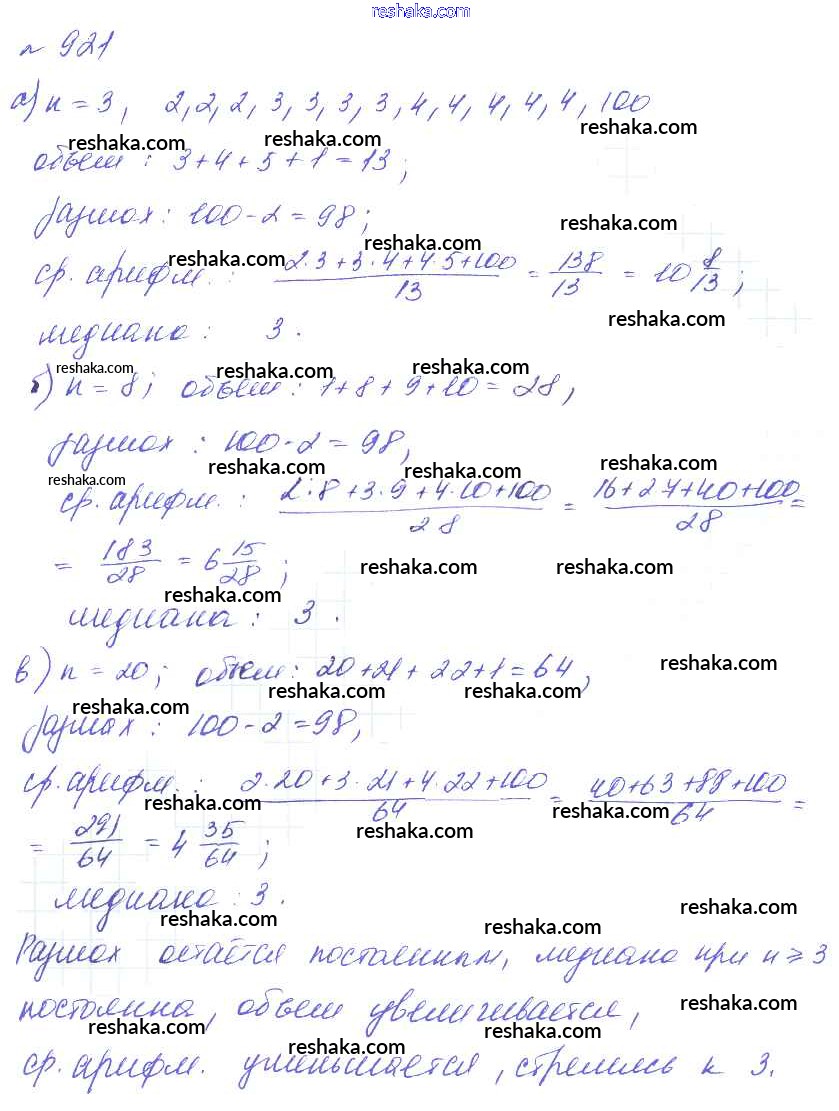 reshaka.com
№ 921
а) n = 3, 2, 2, 2, 3, 3, 3, 3, 4, 4, 4, 4, 4, 100
reshaka.com reshaka.com reshaka.com
объем : 3+4+5+1=13;
размах : 100-2=98;
reshaka.com
reshaka.com reshaka.com
ср. арифм. : \frac{2·3+3·4+4·5+100}{13} = \frac{138}{13} = 10 \frac{8}{13};
reshaka.com
медиана : 3.
reshaka.com reshaka.com reshaka.com
б) n = 8; объем : 1+8+9+10=28,
размах : 100-2=98,
reshaka.com reshaka.com reshaka.com reshaka.com
ср. арифм. : \frac{2·8+3·9+4·10+100}{28} = \frac{16+27+40+100}{28} =
= \frac{183}{28} = 6 \frac{15}{28};
reshaka.com reshaka.com reshaka.com
медиана : 3.
в) n = 20; объем : 20+21+22+1=64,
reshaka.com
reshaka.com reshaka.com reshaka.com
размах : 100-2=98,
ср. арифм. : \frac{2·20+3·21+4·22+100}{64} = \frac{40+63+88+100}{64} =
reshaka.com reshaka.com reshaka.com
= \frac{291}{64} = 4 \frac{35}{64};
медиана : 3.
reshaka.com reshaka.com reshaka.com
Размах остаётся постоянным, медиана при n ⩾ 3
постоянна, объем увеличивается,
reshaka.com reshaka.com reshaka.com
ср. арифм. уменьшается, стремясь к 3.
reshaka.com